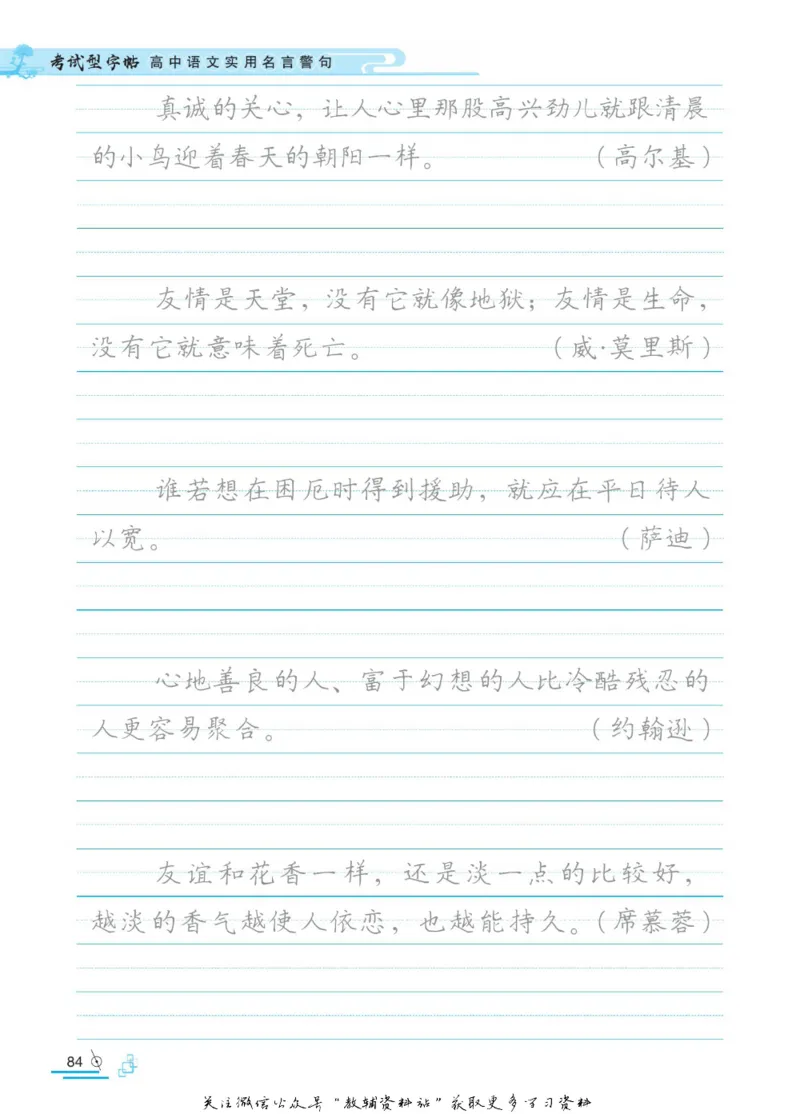 考试型字帖 高中语文实用名言警句
真诚的关心，让人心里那股高兴劲儿就跟清晨
的小鸟迎着春天的朝阳一样。 （高尔基）
友情是天堂，没有它就像地狱；友情是生命，
没有它就意味着死亡。 （威·莫里斯）
谁若想在困厄时得到援助，就应在平日待人
以宽。 （萨迪）
心地善良的人、富于幻想的人比冷酷残忍的
人更容易聚合。 （约翰逊）
友谊和花香一样，还是淡一点的比较好，
越淡的香气越使人依恋，也越能持久。（席慕蓉）
84
关注微信公众号“教辅资料站”获取更多学习资料